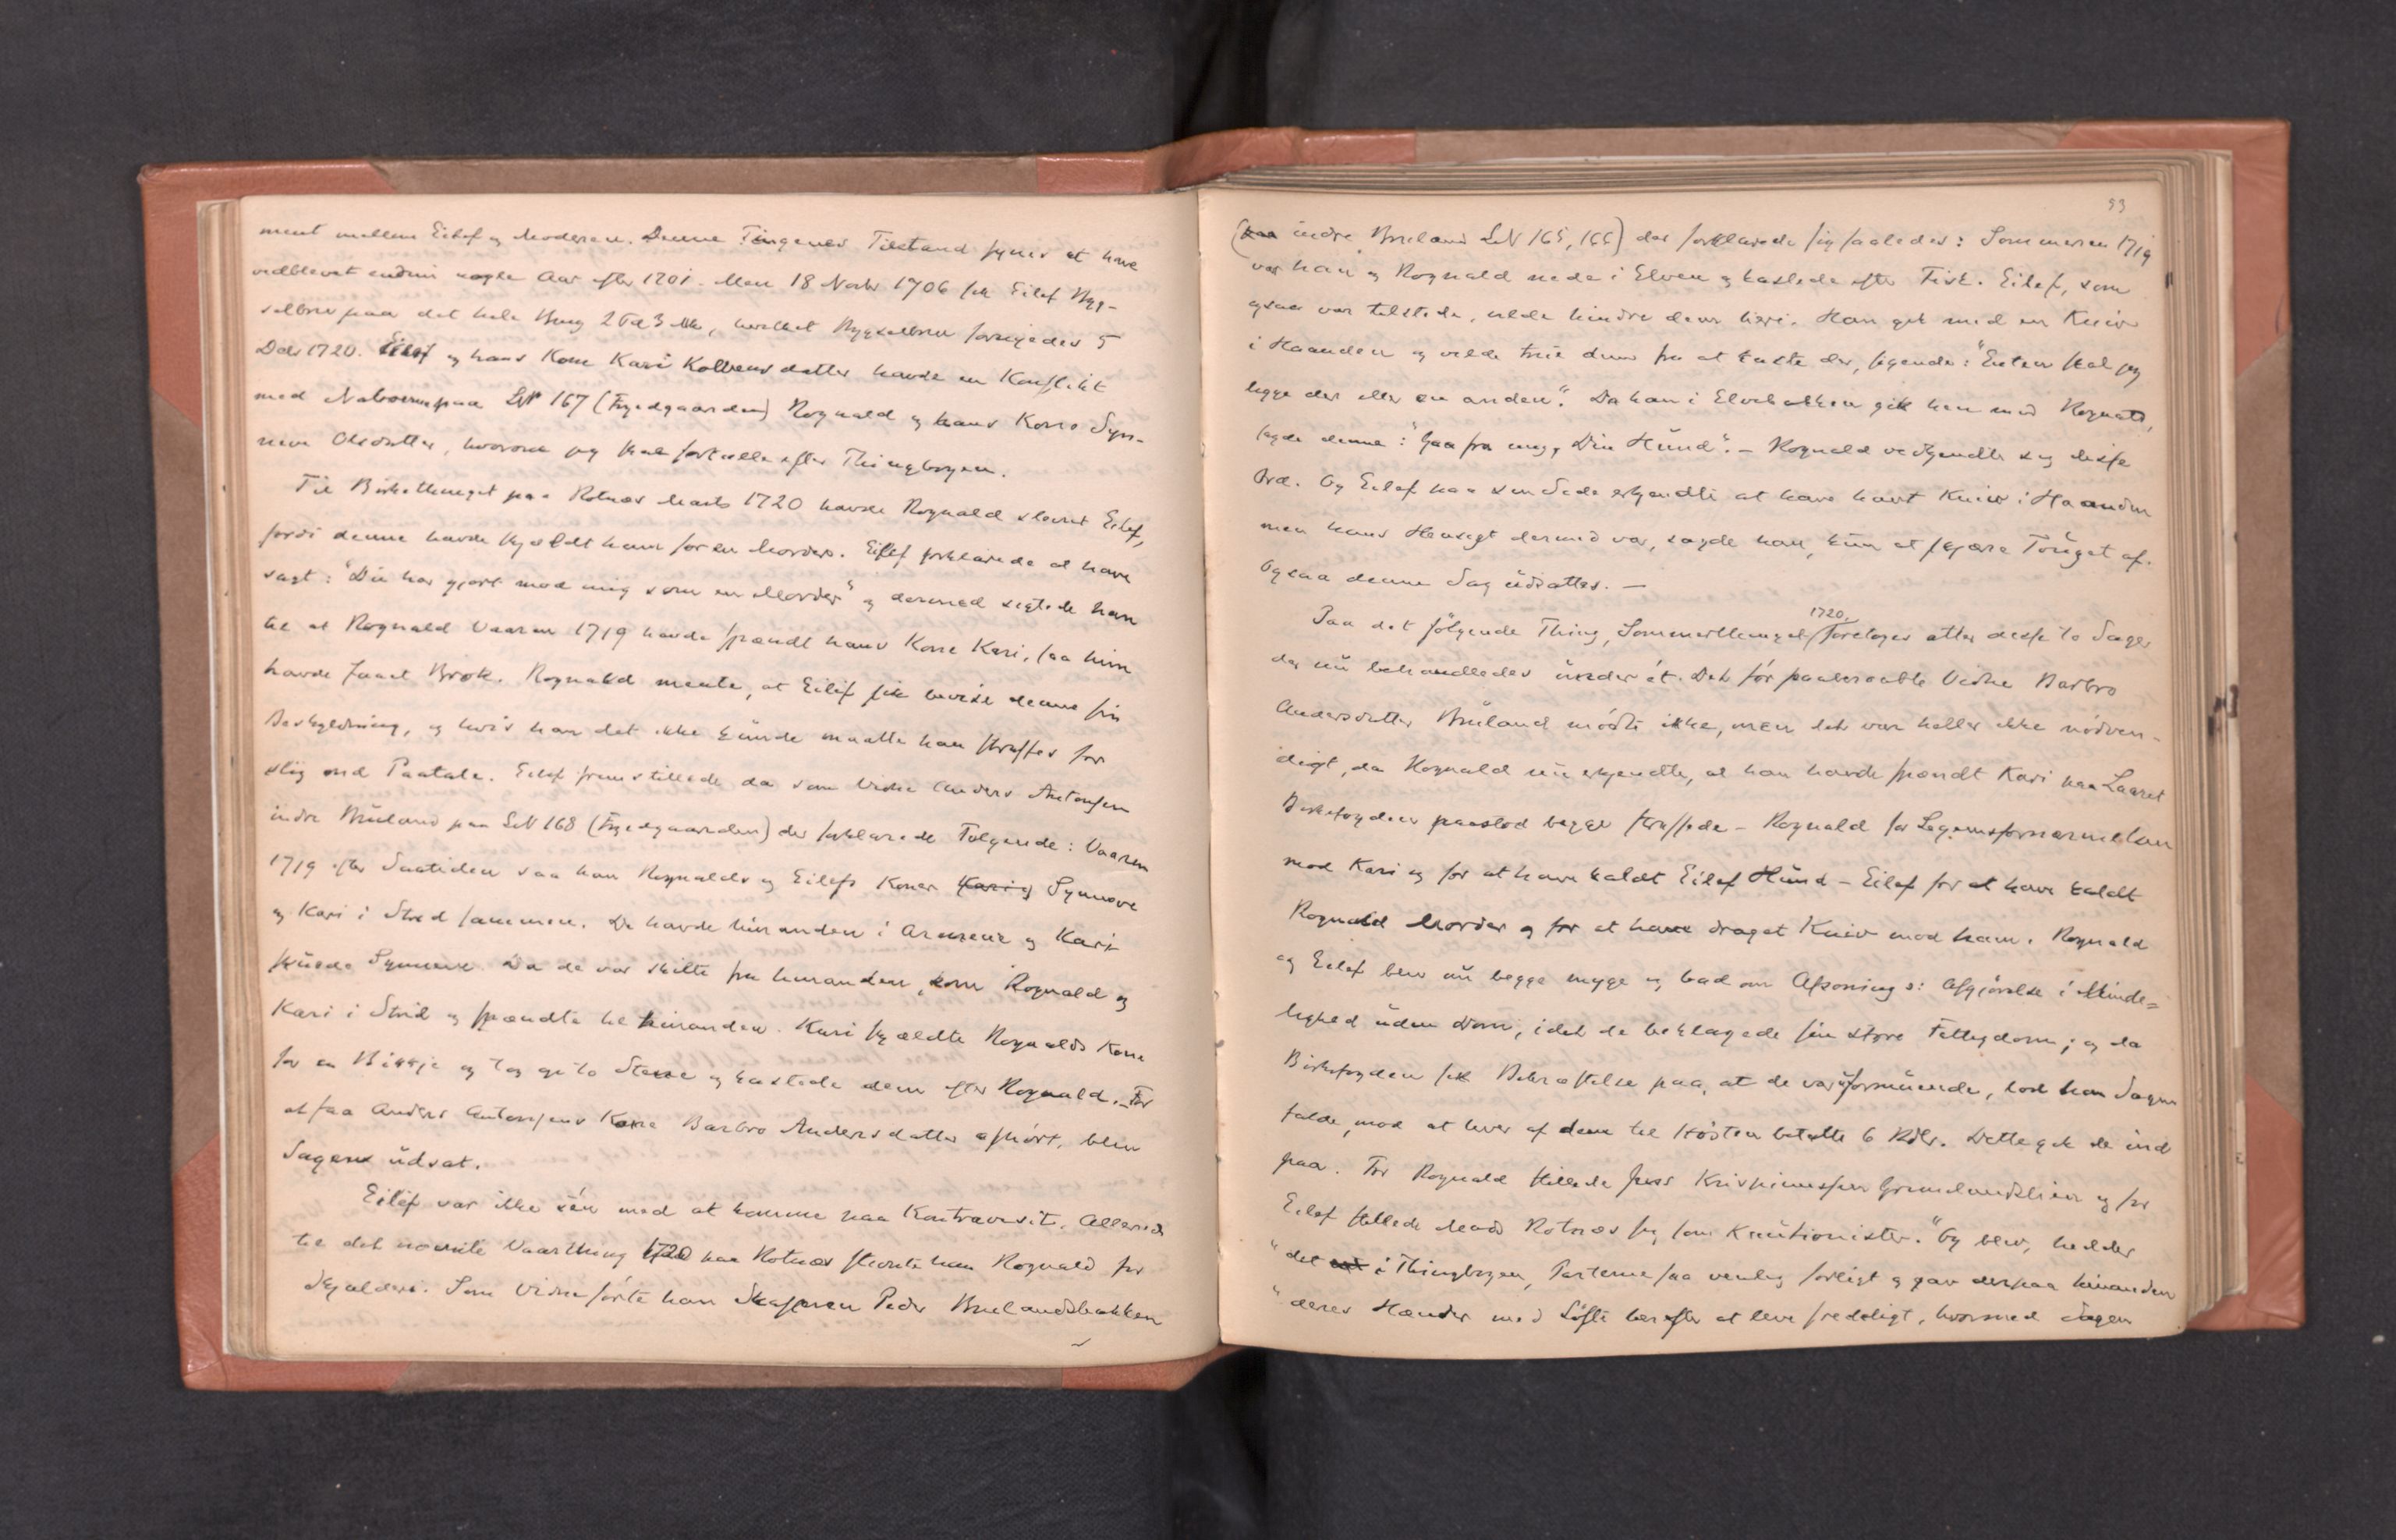 ment mellem Eilef og Moderen. Denne Tingenes Tilstand synes at have
vedblevet endnu nogle Aar efter 1701. Men 18 Novbr 1706 fik Eilef Byg-
selbrev paa det hele Brug 2 Td 3 Mk, hvilket Bygselbrev fornyedes 5
Dcbr 1720. Eilef og hans Kone Kari Kolbensdatter havde en Konflikt
med Naboerne paa LN 167 (Trædgaarden) Rognald og hans Kone Syn-
neve Olsdatter, hvorom jeg skal fortælle efter Thingbogen.
Til Birkethinget paa Rotnæs Marts 1720 havde Rognald stevnt Eilef,
fordi denne havde skjældt ham for en Morder. Eilef forklarede at have
sagt: "Du har gjort mod mig som en Morder" og dermed sigtede han
til at Rognald Vaaren 1719 havde spændt hans Kone Kari, saa hun
havde faaet Brok. Rognald mente, at Eilef fik bevise denne sin
Beskyldning, og hvis han det ikke kunde maatte han straffes for
slig ond Paatale. Eilef fremstillede da som Vidne Anders Antonsen
indre Bruland paa LN 168 (Trædgaarden) der forklarede Følgende: Vaaren
1719 efter Saatiden saa han Rognalds og Eilefs Koner Kari og Synnove
og Kari i Strid sammen. De havde hinanden i Armene og Kari
skuede Synneve. Da de var skilte fra hinanden, kom Rognald og
Kari i Strid og spændte til hinanden. Kari skjældte Rognalds Kone
for en Bikkje og tog op to Stene og kastede dem efter Rognald. – For
at faa Anders Antonsens Kone Barbro Andersdatter afhørt, blev
Sagen udsat.
Eilef var ikke sén med at komme paa Kontravisit. Allerede
til det nævnte Vaarthing 1720 paa Rotnæs stevnte han Rognald for
Skjælderi. Som Vidne førte han Skafferen Peder Brulandsbakken
93
(paa indre Bruland LN 165, 166) der forklarede sig saaledes: Sommeren 1719
var han og Rognald nede i Elven og kastede efter Fisk. Eilef, som
ogsaa var tilstede, vilde hindre dem heri. Han gik med en Kniv
i Haanden og vilde true dem fra at kaste der, sigende: "Enten skal jeg
ligge der eller en anden". Da han i Elvebakken gik hen mod Rognald,
sagde denne: "Gaa fra mig, Din Hund". – Rognald vedkjendte sig disse
Ord. Og Eilef paa sin Side erkjendte at have havt Kniv i Haanden
men hans Hensigt dermed var, sagde han, kun at skjære Touget af.
Ogsaa denne Sag udsattes. –
Paa det følgende Thing, Sommerthinget 1720, foretoges atter disse to Sager
der nu behandledes under ét. Det før paaberaabte Vidne Barbro
Andersdatter Bruland mødte ikke, men det var heller ikke nødven-
digt, da Rognald nu erkjendte, at han havde spændt Kari paa Laaret
Birkefogden paastod begge straffede – Rognald for Legemsfornærmelsen
mod Kari og for at have kaldt Eilef Hund – Eilef for at have kaldt
Rognald Morder og for at have draget Kniv mod ham. Rognald
og Eilef blev nu begge myge og bad om Afsoning ɔ: Afgjørelse i Minde=
lighed uden Dom, idet de beklagede sin store Fattigdom; og da
Birkefogden fik Bekræftelse paa, at de var uformuende, lod han Sagen
falde, mod at hver af dem til Kosten betalte 6 Rdlr. Dette gik de ind
paa. For Rognald stillede Jens Krispinussen Grimelandslien og for
Eilef stillede Mads Rotnæs sig som Kautionister. "Og blev, hedder
"det i Thingbogen, Parterne saa venlig forligt og gav derpaa hinanden
"deres Hænder med Løfte herefter at leve fredeligt, hvormed Sagen